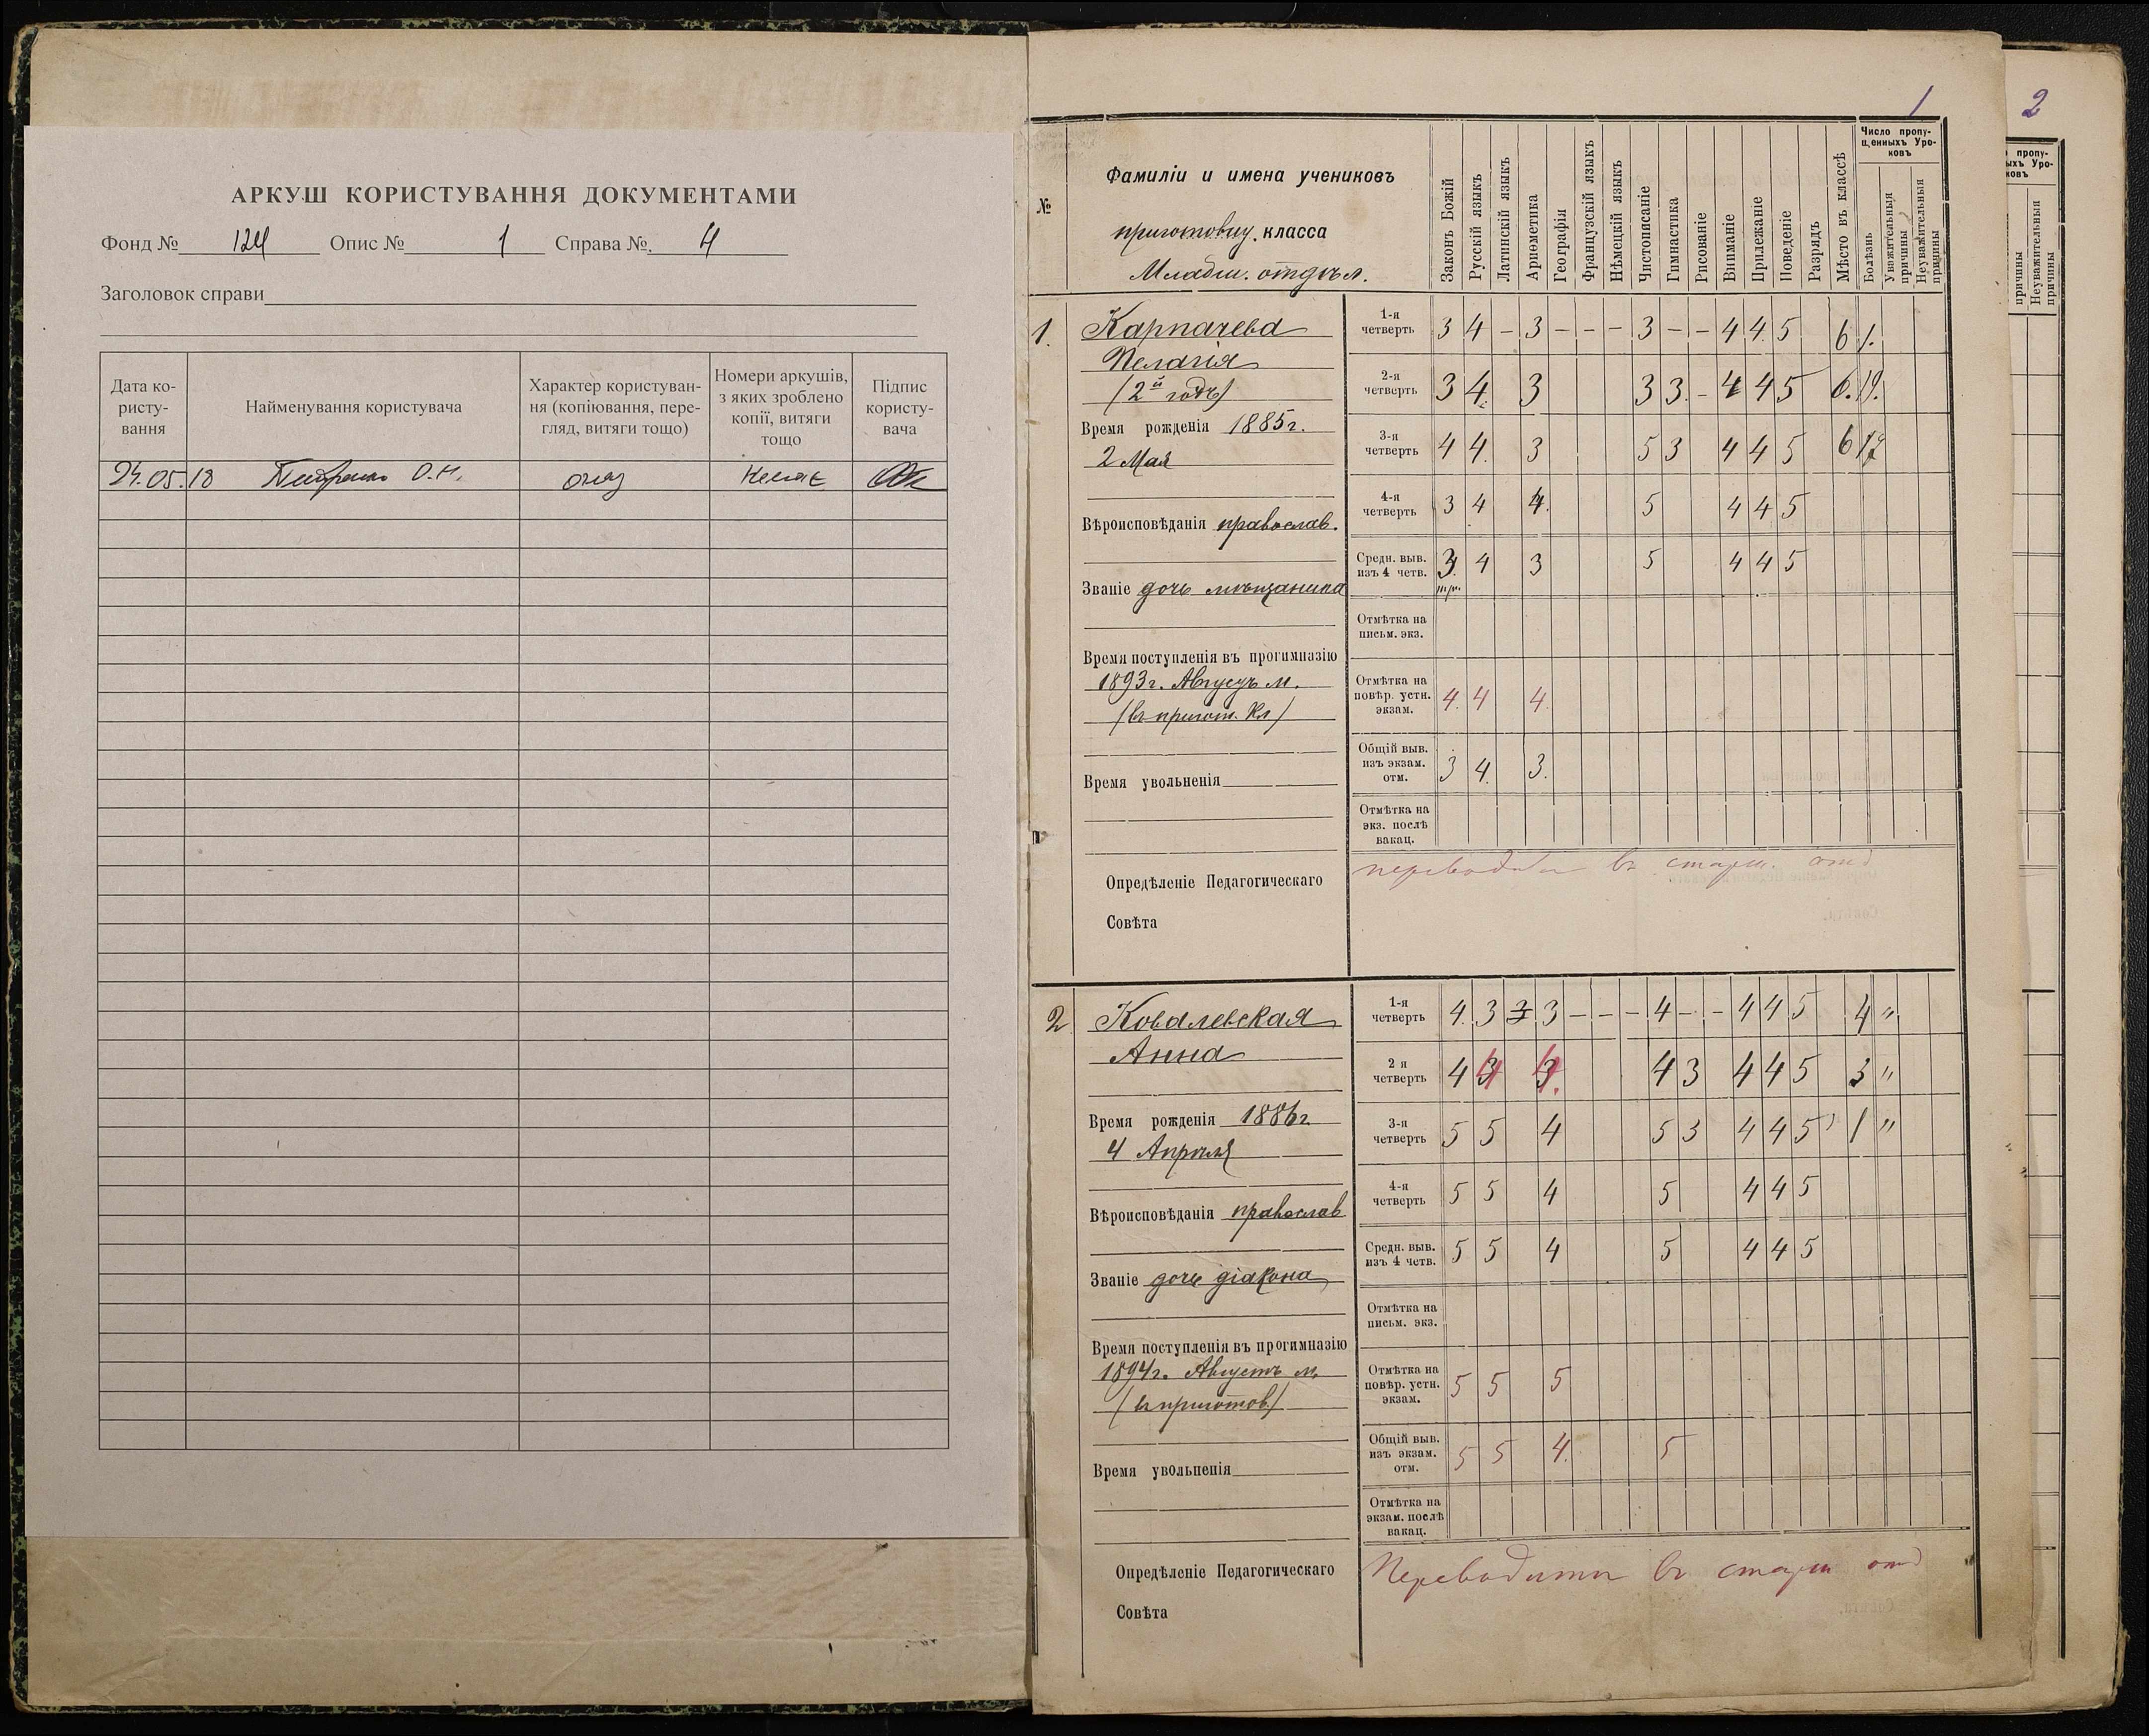 АРКУШ КОРИСТУВАННЯ ДОКУМЕНТАМИ
Фонд № 124 Опис № 1 Справа № 4
Заголовок справи
Дата користування
Найменування користувача
Характер користування (копіювання, перегляд, витяги тощо)
Номери аркушів, з яких зроблено копії, витяги тощо
Підпис користувача
24.05.18 О.М. огляд немає
1
2
№
Фамиліи и имена учениковъ
приготовиу. класса
Младш. отдѣл.
Законъ Божій
Русскій языкъ
Латинскій языкъ
Ариѳметика
Географія
Французскій языкъ
Нѣмецкій языкъ
Чистописаніе
Гимнастика
Рисованіе
Вниманіе
Прилежаніе
Поведеніе
Разрядъ
Мѣсто въ классѣ
Число пропу-
щенныхъ Уро-
ковъ
Болѣзнь
Уважительныя причины
Неуважительныя причины
1. Карпачева
Пелагія
(2й годъ)
Время рожденія 1885 г.
2 Мая
Вѣроисповѣданія православ.
Званіе дочь мѣщанина
Время поступленія въ прогимназію
1893 г. Августъ м.
(въ пригот. кл)
Время увольненія
Опредѣленіе Педагогическаго
Совѣта
1-я четверть 3 4 – 3 – – – 3 – – 4 4 5 6 1.
2-я четверть 3 4. 3 3 3. – 4 4 5 6. 19.
3-я четверть 4 4. 3 5 3 4 4 5 6 12
4-я четверть 3 4 4. 5 4 4 5
Средн. выв. изъ 4 четв. 3 4 3 5 4 4 5
три.
Отмѣтка на письм. экз.
Отмѣтка на повѣр. устн. экзам. 4. 4 4.
Общій выв. изъ экзам. отм. 3 4. 3.
Отмѣтка на экз. послѣ вакац.
переводить въ старш. отд
2 Ковалевская
Анна
Время рожденія 1886 г.
4 Апрѣля
Вѣроисповѣданія православ
Званіе дочь діакона
Время поступленія въ прогимназію
1894 г. Августъ м.
(въ приготов.)
Время увольненія
Опредѣленіе Педагогическаго
Совѣта
1-я четверть 4. 3 3 3 – – – 4 – – 4 4 5 4 "
2 я четверть 4 4 4. 4 3 4 4 5 3 "
3-я четверть 5 5 4 5 3 4 4 5 1 "
4-я четверть 5 5 4 5 4 4 5
Средн. выв. изъ 4 четв. 5 5 4 5 4 4 5
Отмѣтка на письм. экз.
Отмѣтка на повѣр. устн. экзам. 5 5 5
Общій выв. изъ экзам. отм. 5 5 4. 5
Отмѣтка на экзам. послѣ вакац.
Переводить въ старш отд